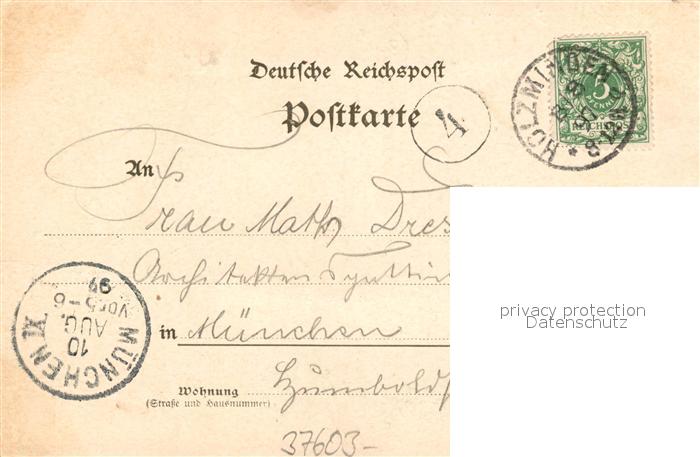 Deutsche Reichspost
Postkarte
4
HOLZMINDEN
8
5
PFENNIG
REICHSPOST
An
Frau Math Dres
Architekten
in München
MÜNCHEN XI.
10
AUG.
VOR 5-6
97
Wohnung
(Straße und Hausnummer)
Humboldt
37603-
privacy protection
Datenschutz